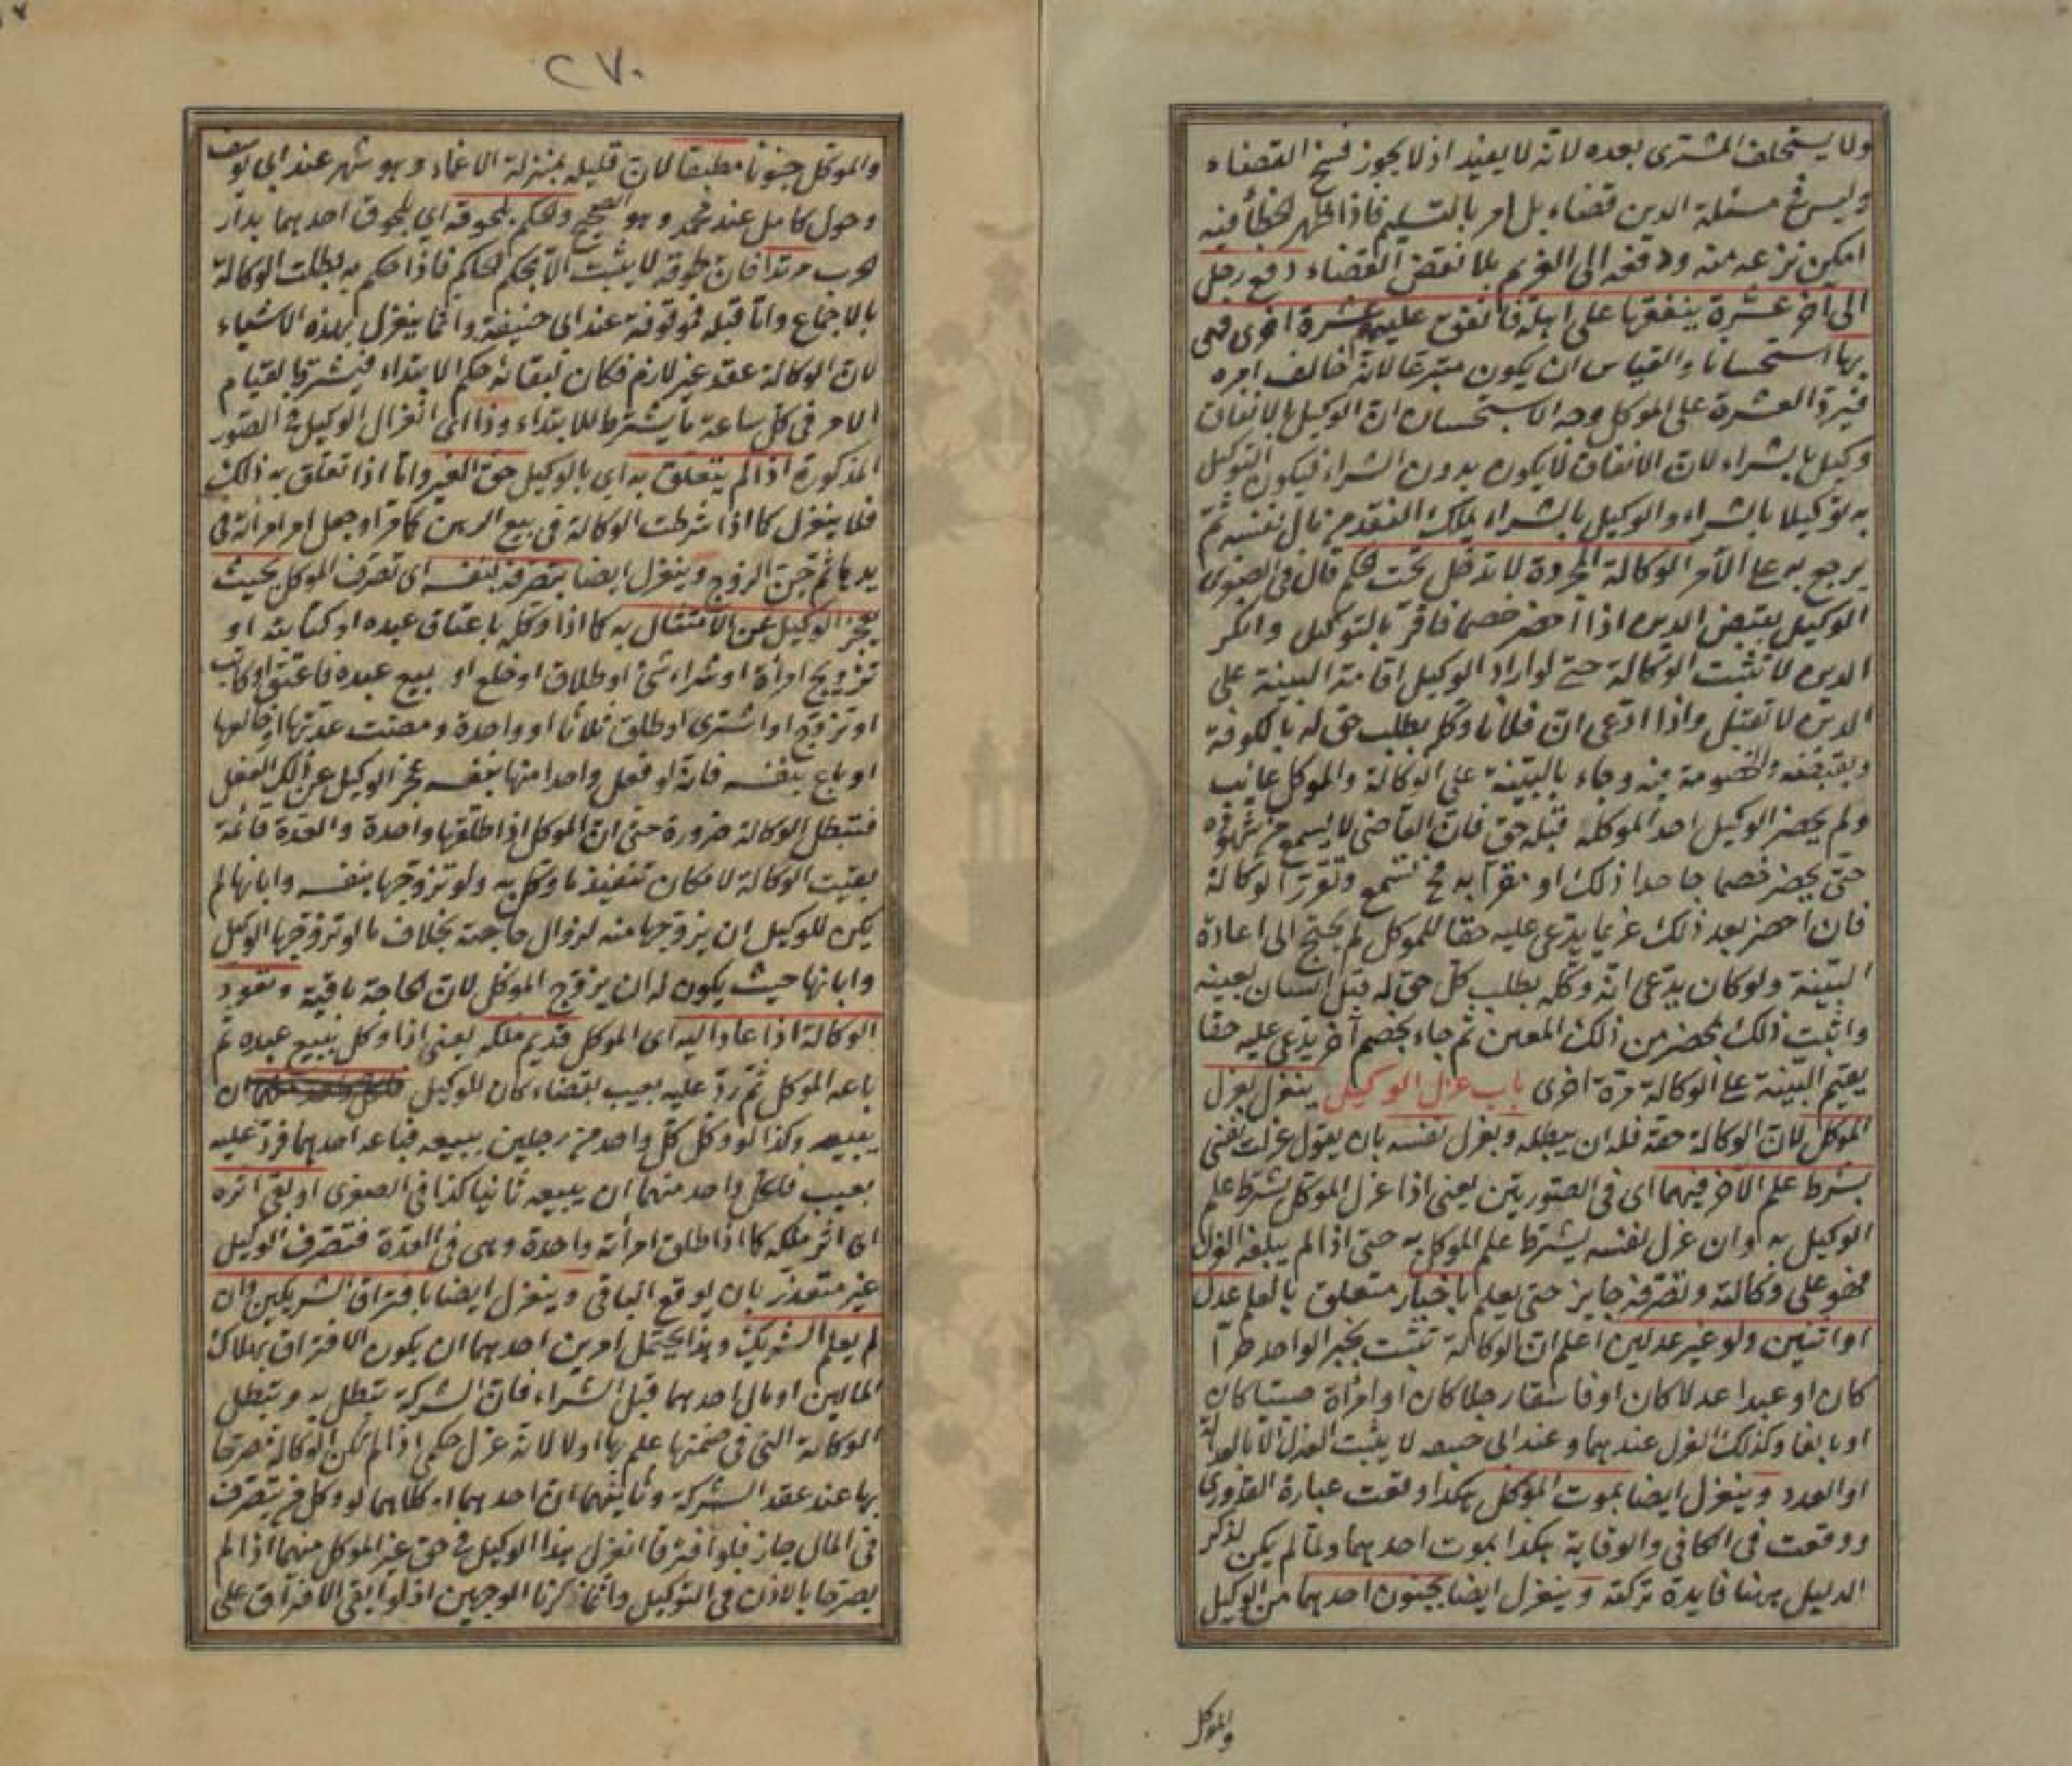 ولا يستحلف المشترى بعده لانه لا يفيد اذ لا يجوز فسخ القضاء
وليس في مسئلة الدين قضاء بل امر بالتسليم فاذا ظهر الخطأ فيه
امكن نزعه منه ودفعه الى الغريم بلا نقض القضاء دفع رجل
الى آخر عشرة ينفقها على اهله فانفق عليهم عشرة اخرى فهى
بها استحسانا والقياس ان يكون متبرعا لانه خالف امره
فيرد العشرة على الموكل وجه الاستحسان ان الوكيل بالانفاق
وكيل بالشراء لان الانفاق لا يكون بدون الشراء فيكون التوكيل
به توكيلا بالشراء والوكيل بالشراء يملك النقد من مال نفسه ثم
يرجع به على الآمر الوكالة المجردة لا تدخل تحت الحكم قال فى الصغرى
الوكيل بقبض الدين اذا احضر خصما فاقر بالتوكيل وانكر
الدين لا تثبت الوكالة حتى لو اراد الوكيل اقامة البينة على
الدين لا تقبل واذا ادعى ان فلانا وكله بطلب حق له بالكوفة
وبقبضه والخصومة فيه وجاء بالبينة على الوكالة والموكل غايب
ولم يحضر الوكيل احدا للموكل قبله حق فان القاضى لا يسمع من شهوده
حتى يحضر خصما جاحدا ذلك او مقرا به فح تسمع وتقرر الوكالة
فان احضر بعد ذلك غريما يدعى عليه حقا للموكل لم يحتج الى اعادة
البينة ولو كان يدعى انه وكله بطلب كل حق له قبل انسان بعينه
واثبت ذلك بمحضر من ذلك المعين ثم جاء بخصم آخر يدعى عليه حقا
يقيم البينة على الوكالة مرة اخرى باب عزل الوكيل ينعزل بعزل
الموكل لان الوكالة حقه فله ان يبطله وبعزل نفسه بان يقول عزلت نفسى
بشرط علم الآخر فيهما اى فى الصورتين يعنى اذا عزل الموكل يشترط علم
الوكيل به وان عزل نفسه يشترط علم الموكل به حتى اذا لم يبلغه العزل
فهو على وكالته وتصرفه جايز حتى يعلم باخبار متعلق بالعلم عدل
او اثنين ولو غير عدلين اعلم ان الوكالة تثبت بخبر الواحد حرا
كان او عبدا عدلا كان او فاسقا رجلا كان او امرأة صبيا كان
او بالغا وكذلك العزل عندهما وعند ابى حنيفه لا يثبت العزل الا بالعدالة
او العدد وينعزل ايضا بموت الموكل هكذا وقعت عبارة القدورى
ووقعت فى الكافى والوقاية هكذا بموت احدهما ولما لم يكن لذكر
الدليل ههنا فايدة تركته وينعزل ايضا بجنون احدهما من الوكيل
والموكل
٢٧٠
والموكل جنونا مطبقا لان قليله بمنزلة الاغماء وهو شهر عند ابى يوسف
وحول كامل عند محمد وهو الصحيح والحكم بلحوقه اى لحوق احدهما بدار
الحرب مرتدا فان لحوقه لا يثبت الا بحكم الحاكم فاذا حكم به بطلت الوكالة
بالاجماع واما قبله فموقوفة عند ابى حنيفة وانما ينعزل بهذه الاشياء
لان الوكالة عقد غير لازم فكان لبقائه حكم الابتداء فيشترط لقيام
الامر فى كل ساعة ما يشترط للابتداء وذا اى انعزال الوكيل فى الصور
المذكورة اذا لم يتعلق به اى بالوكيل حق الغير واما اذا تعلق به ذلك
فلا ينعزل كما اذا شرطت الوكالة فى بيع الرهن كما مر او جعل امر امرأته فى
يدها ثم جن الزوج وينعزل ايضا بتصرفه لنفسه اى تصرف الموكل بحيث
يعجز الوكيل عن الامتثال به كما اذا وكله باعتاق عبده او كتابته او
تزويج امرأة او شراء شئ او طلاق او خلع او بيع عبده فاعتق او كاتب
او تزوج او اشترى او طلق ثلاثا او واحدة ومضت عدتها او خالعها
او باع بنفسه فانه لو فعل واحدا منها بنفسه عجز الوكيل عن ذلك الفعل
فتبطل الوكالة ضرورة حتى ان الموكل اذا طلقها واحدة والعدة قائمة
بقيت الوكالة لامكان تنفيذ ما وكل به ولو تزوجها بنفسه وابانها لم
يكن للوكيل ان يزوجها منه لزوال حاجته بخلاف ما لو تزوجها الوكيل
وابانها حيث يكون له ان يزوج الموكل لان الحاجة باقية وتعود
الوكالة اذا عاد اليه اى الموكل قديم ملكه يعنى اذا وكل ببيع عبده ثم
باعه الموكل ثم رد عليه بعيب بقضاء كان للوكيل ان
يبيعه وكذا لو وكل كل واحد من رجلين ببيعه فباعه احدهما فرد عليه
بعيب فلكل واحد منهما ان يبيعه ثانيا كذا فى الصغرى او بقى اثره
اى اثر ملكه كما اذا طلق امرأته واحدة وهى فى العدة فتصرف الوكيل
غير متعذر بان يوقع الباقى وينعزل ايضا بافتراق الشريكين وان
لم يعلم الشريك وهذا يحتمل امرين احدهما ان يكون الافتراق بهلاك
المالين او مال احدهما قبل الشراء فان الشركة تبطل به وتبطل
الوكالة التى فى ضمنها علم بها او لا لانه عزل حكمى اذا لم تكن الوكالة مصرحا
بها عند عقد الشركة وثانيهما ان احدهما او كلاهما لو وكل من يتصرف
فى المال جاز فلو افترقا انعزل هذا الوكيل فى حق غير الموكل منهما اذا لم
يصرحا بالاذن فى التوكيل وانما ذكرنا الوجهين اذ لو ابقى الافتراق على